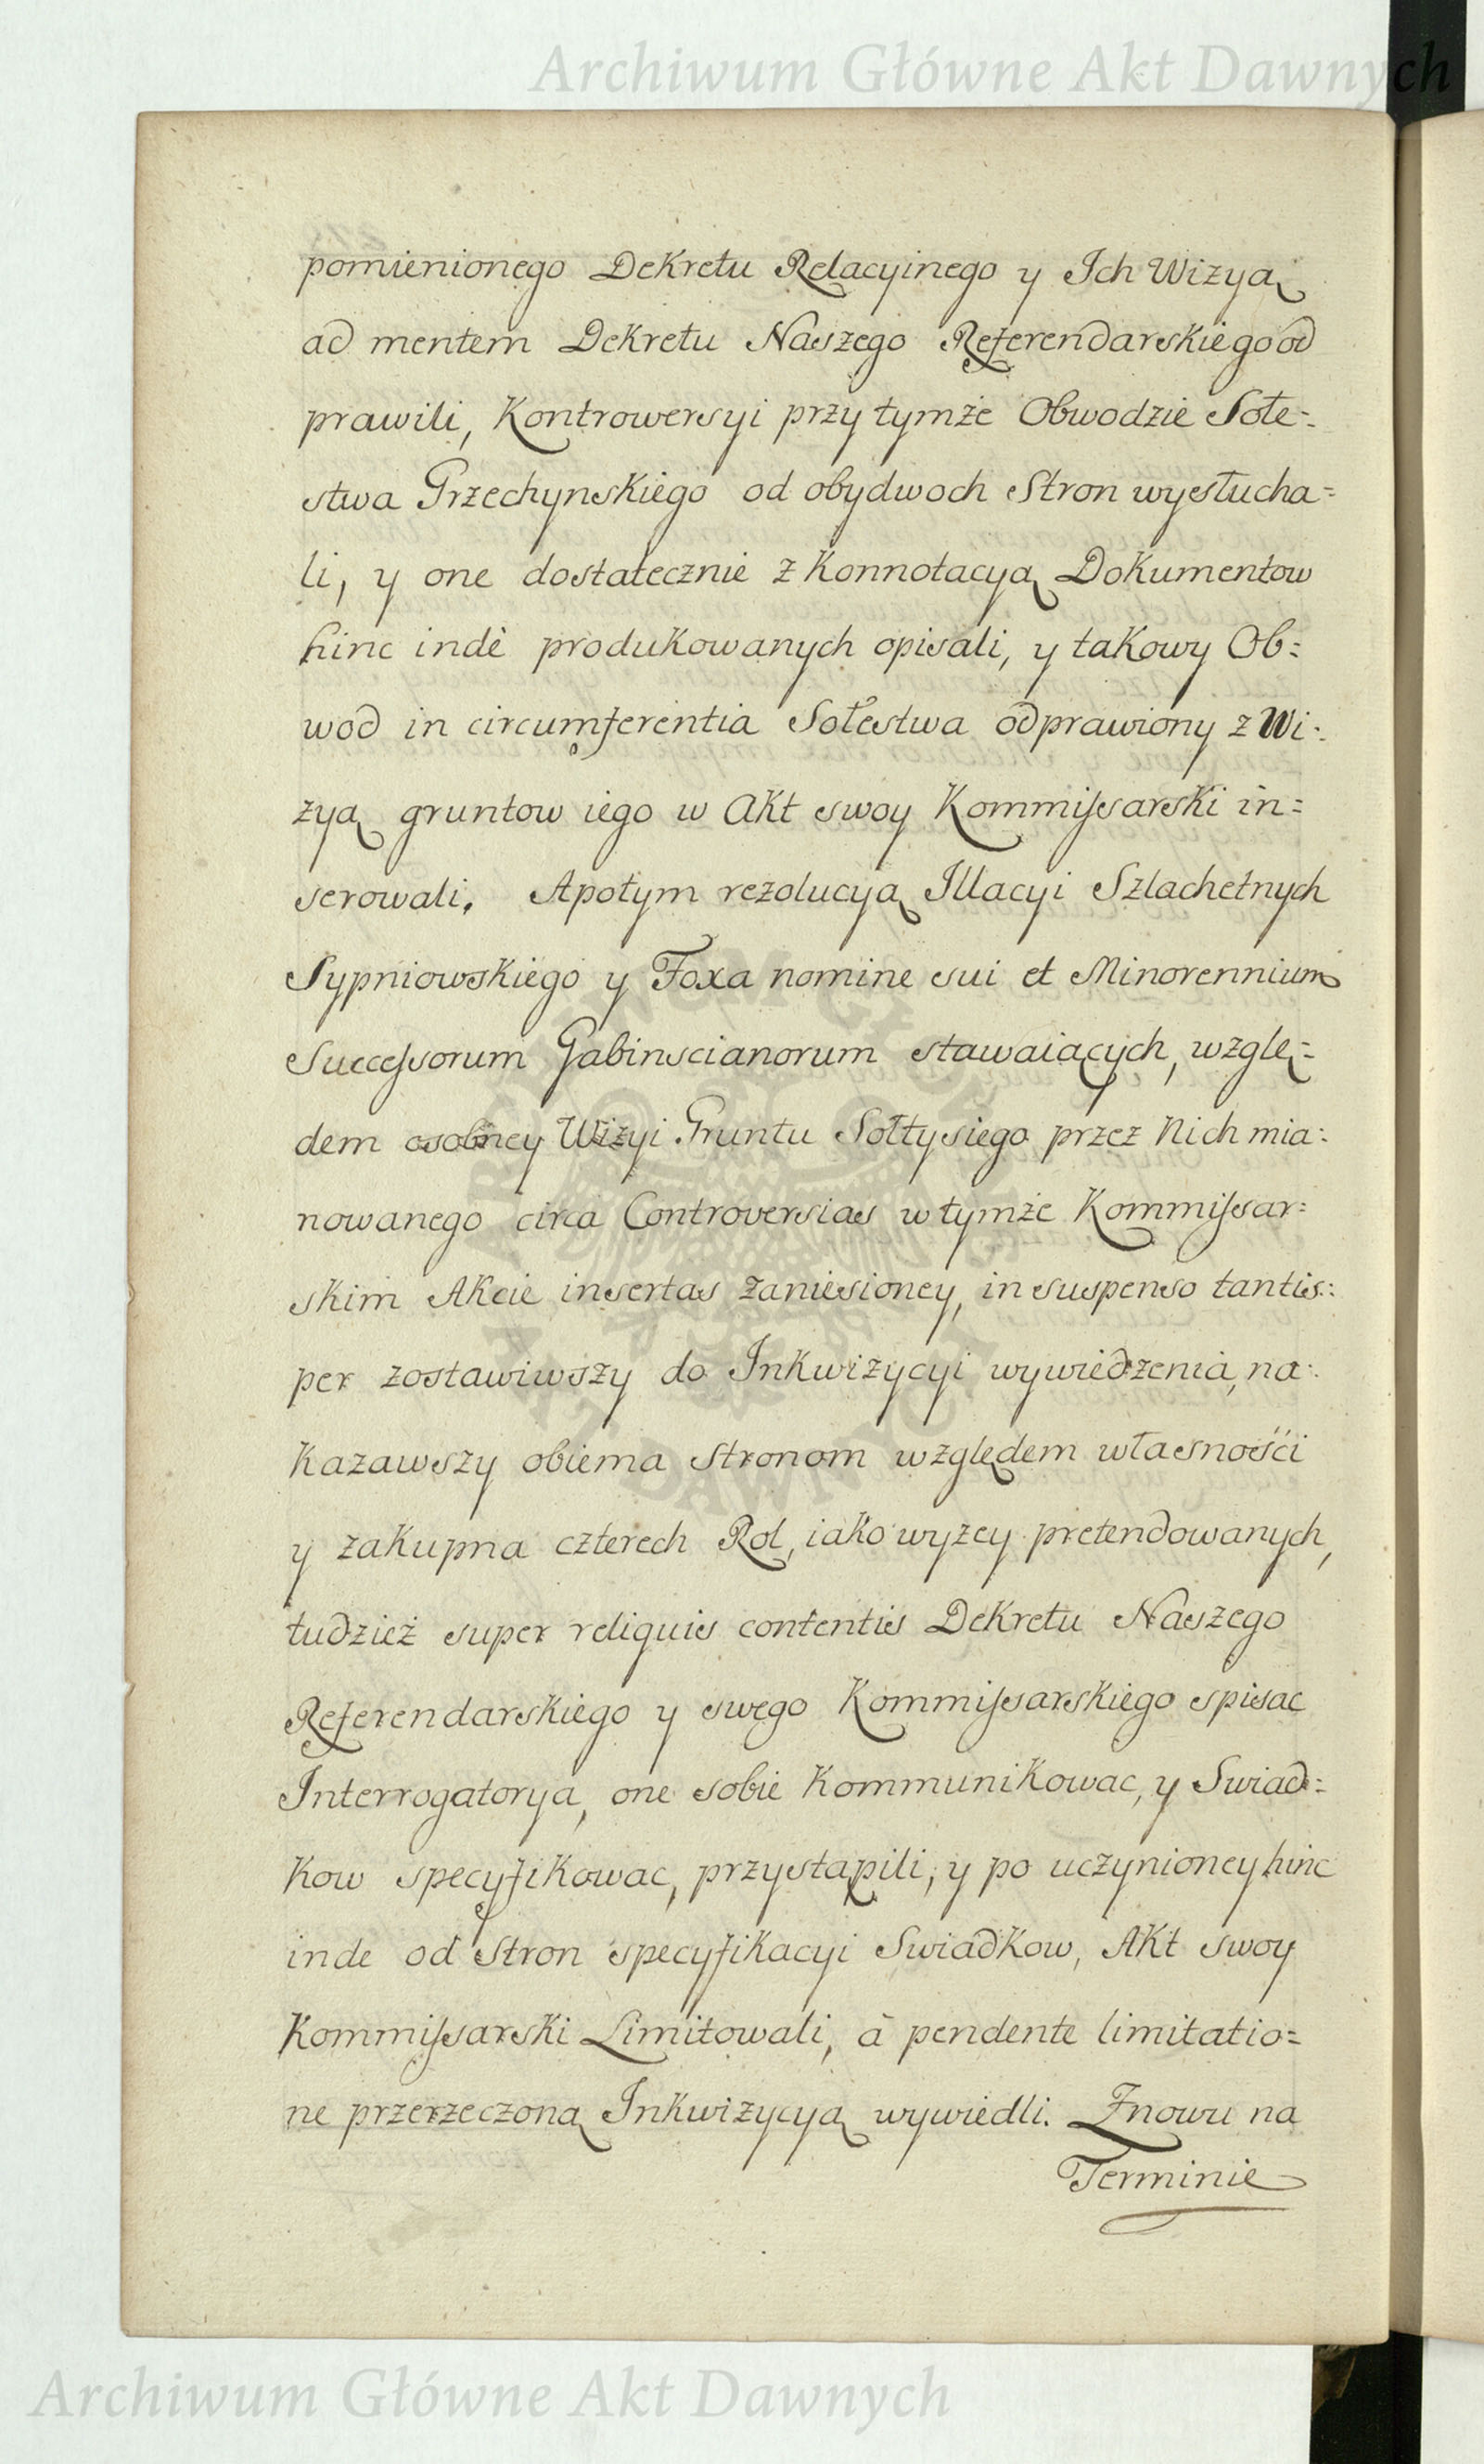 Archiwum Główne Akt Dawnych
pomienionego Dekretu Relacyinego y Ich Wizyą
ad mentem Dekretu Naszego Referendarskiego od
prawili, Kontrowersyi przy tymże Obwodzie Sołe=
stwa Grzechynskiego od obydwoch Stron wysłucha=
li, y one dostatecznie z Konnotacyą Dokumentow
hinc indè produkowanych opisali, y takowy Ob=
wod in circumferentia Sołestwa odprawiony z Wi=
zyą gruntow iego w Akt swoy Kommissarski in=
serowali. Apotym rezolucyą Illacyi Szlachetnych
Sypniowskiego y Foxa nomine sui et Minorennium
Successorum Gabinscianorum stawaiących, wzglę=
dem osobney Wizyi Gruntu Sołtysiego przez Nich mia=
nowanego circa Controversias w tymże Kommissar=
skim Akcie insertas zaniesioney, in suspenso tantis=
per zostawiwszy do Inkwizycyi wywiedzenia, na=
kazawszy obiema Stronom względem własności
y zakupna czterech Rol, iako wyzey pretendowanych,
tudzież super reliquis contentis Dekretu Naszego
Referendarskiego y swego Kommissarskiego spisac
Interrogatorya, one sobie Kommunikowac, y Swiad=
kow specyfikowac, przystąpili, y po uczynioney hinc
inde od Stron specyfikacyi Swiadkow, Akt swoy
Kommissarski Limitowali, à pendente limitatio=
ne przerzeczoną Inkwizycyą wywiedli. Znowu na
Terminie
Archiwum Główne Akt Dawnych